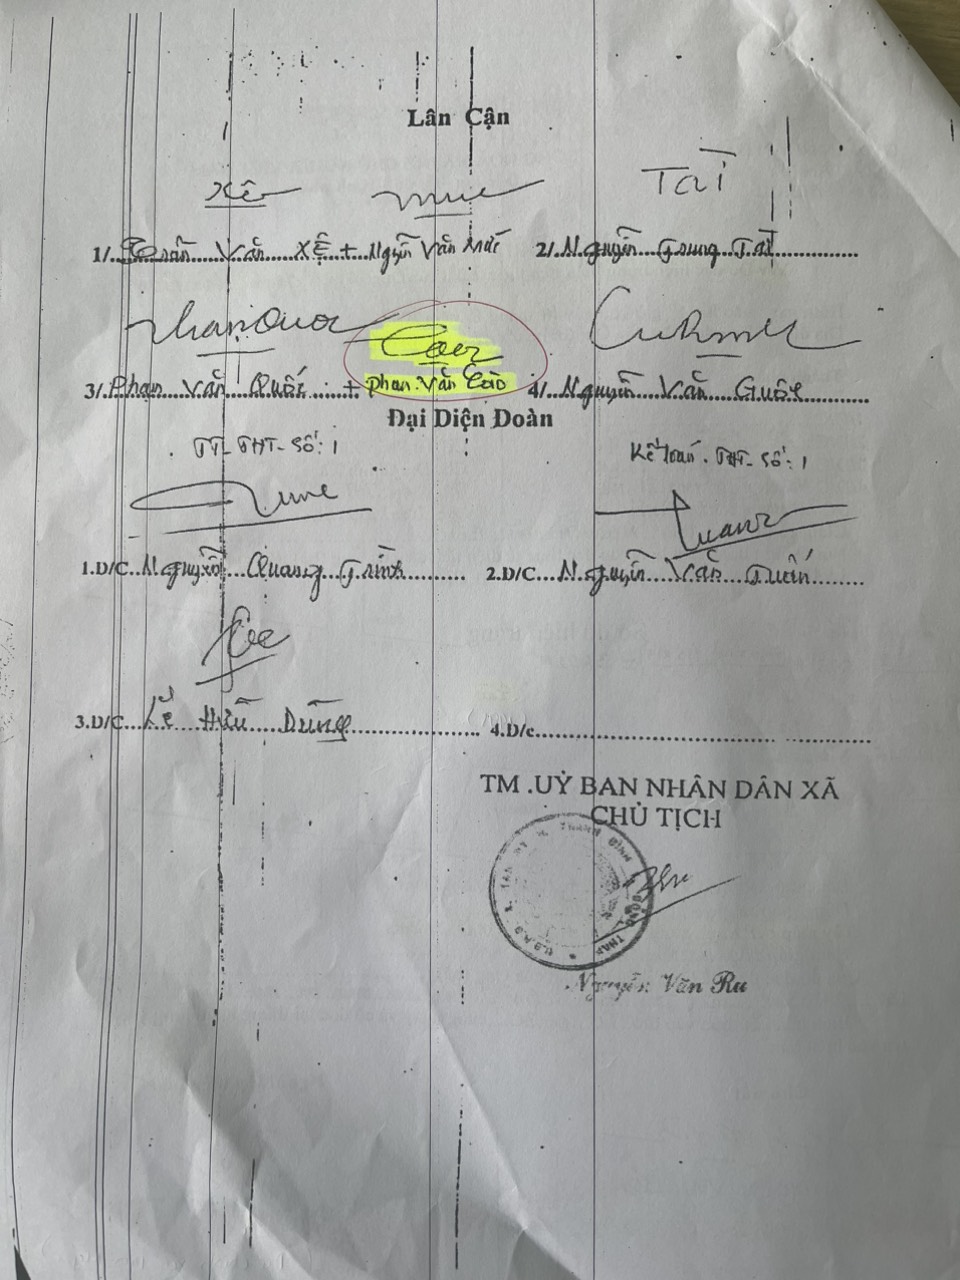 Lân Cận
Xê Mức Tài
1/. Trần Văn Xệ + Nguyễn Văn Mức 2/. Nguyễn Trung Tài
3/. Phạm Văn Quối + Phan Văn Cào 4/. Nguyễn Văn Guôl
Đại Diện Đoàn
TT-THT-Số: 1 Kế toán. THT-Số: 1
1.D/C. Nguyễn Quang Trình 2.D/C. Nguyễn Văn Tuấn
3.D/C. Lê Hữu Dũng 4.D/c
TM .UỶ BAN NHÂN DÂN XÃ
CHỦ TỊCH
Nguyễn Văn Ru